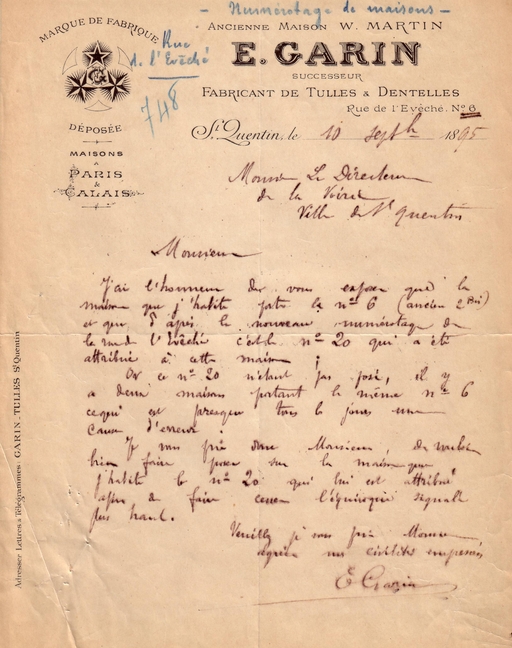 - Numérotage de maisons -
MARQUE DE FABRIQUE
Rue
de l'Evêché
748
DÉPOSÉE
MAISONS
À
PARIS
&
CALAIS
ANCIENNE MAISON W. MARTIN
E. GARIN
SUCCESSEUR
FABRICANT DE TULLES & DENTELLES
Rue de l'Evêché. No 6
St Quentin, le 10 Septbre 1895
Monsieur Le Directeur
de la Voirie
Ville de St Quentin
Monsieur
J'ai l'honneur de vous exposer que la
maison que j'habite porte le no 6 (ancien 2 Bis)
et que d'après le nouveau numérotage de
la rue de l'Evêché c'est le no 20 qui a été
attribué à cette maison ;
Or ce no 20 n'étant pas posé, il y
a deux maisons portant le même no 6
ce qui est presque tous les jours une
cause d'erreur.
Je vous prie donc Monsieur de vouloir
bien faire poser sur la maison que
j'habite le no 20 qui lui est attribué
afin de faire cesser l'équivoque signalé
plus haut.
Veuillez je vous prie Monsieur
agréer mes civilités empressées
E Garin
Adresser Lettres & Télégrammes: GARIN-TULLES St Quentin